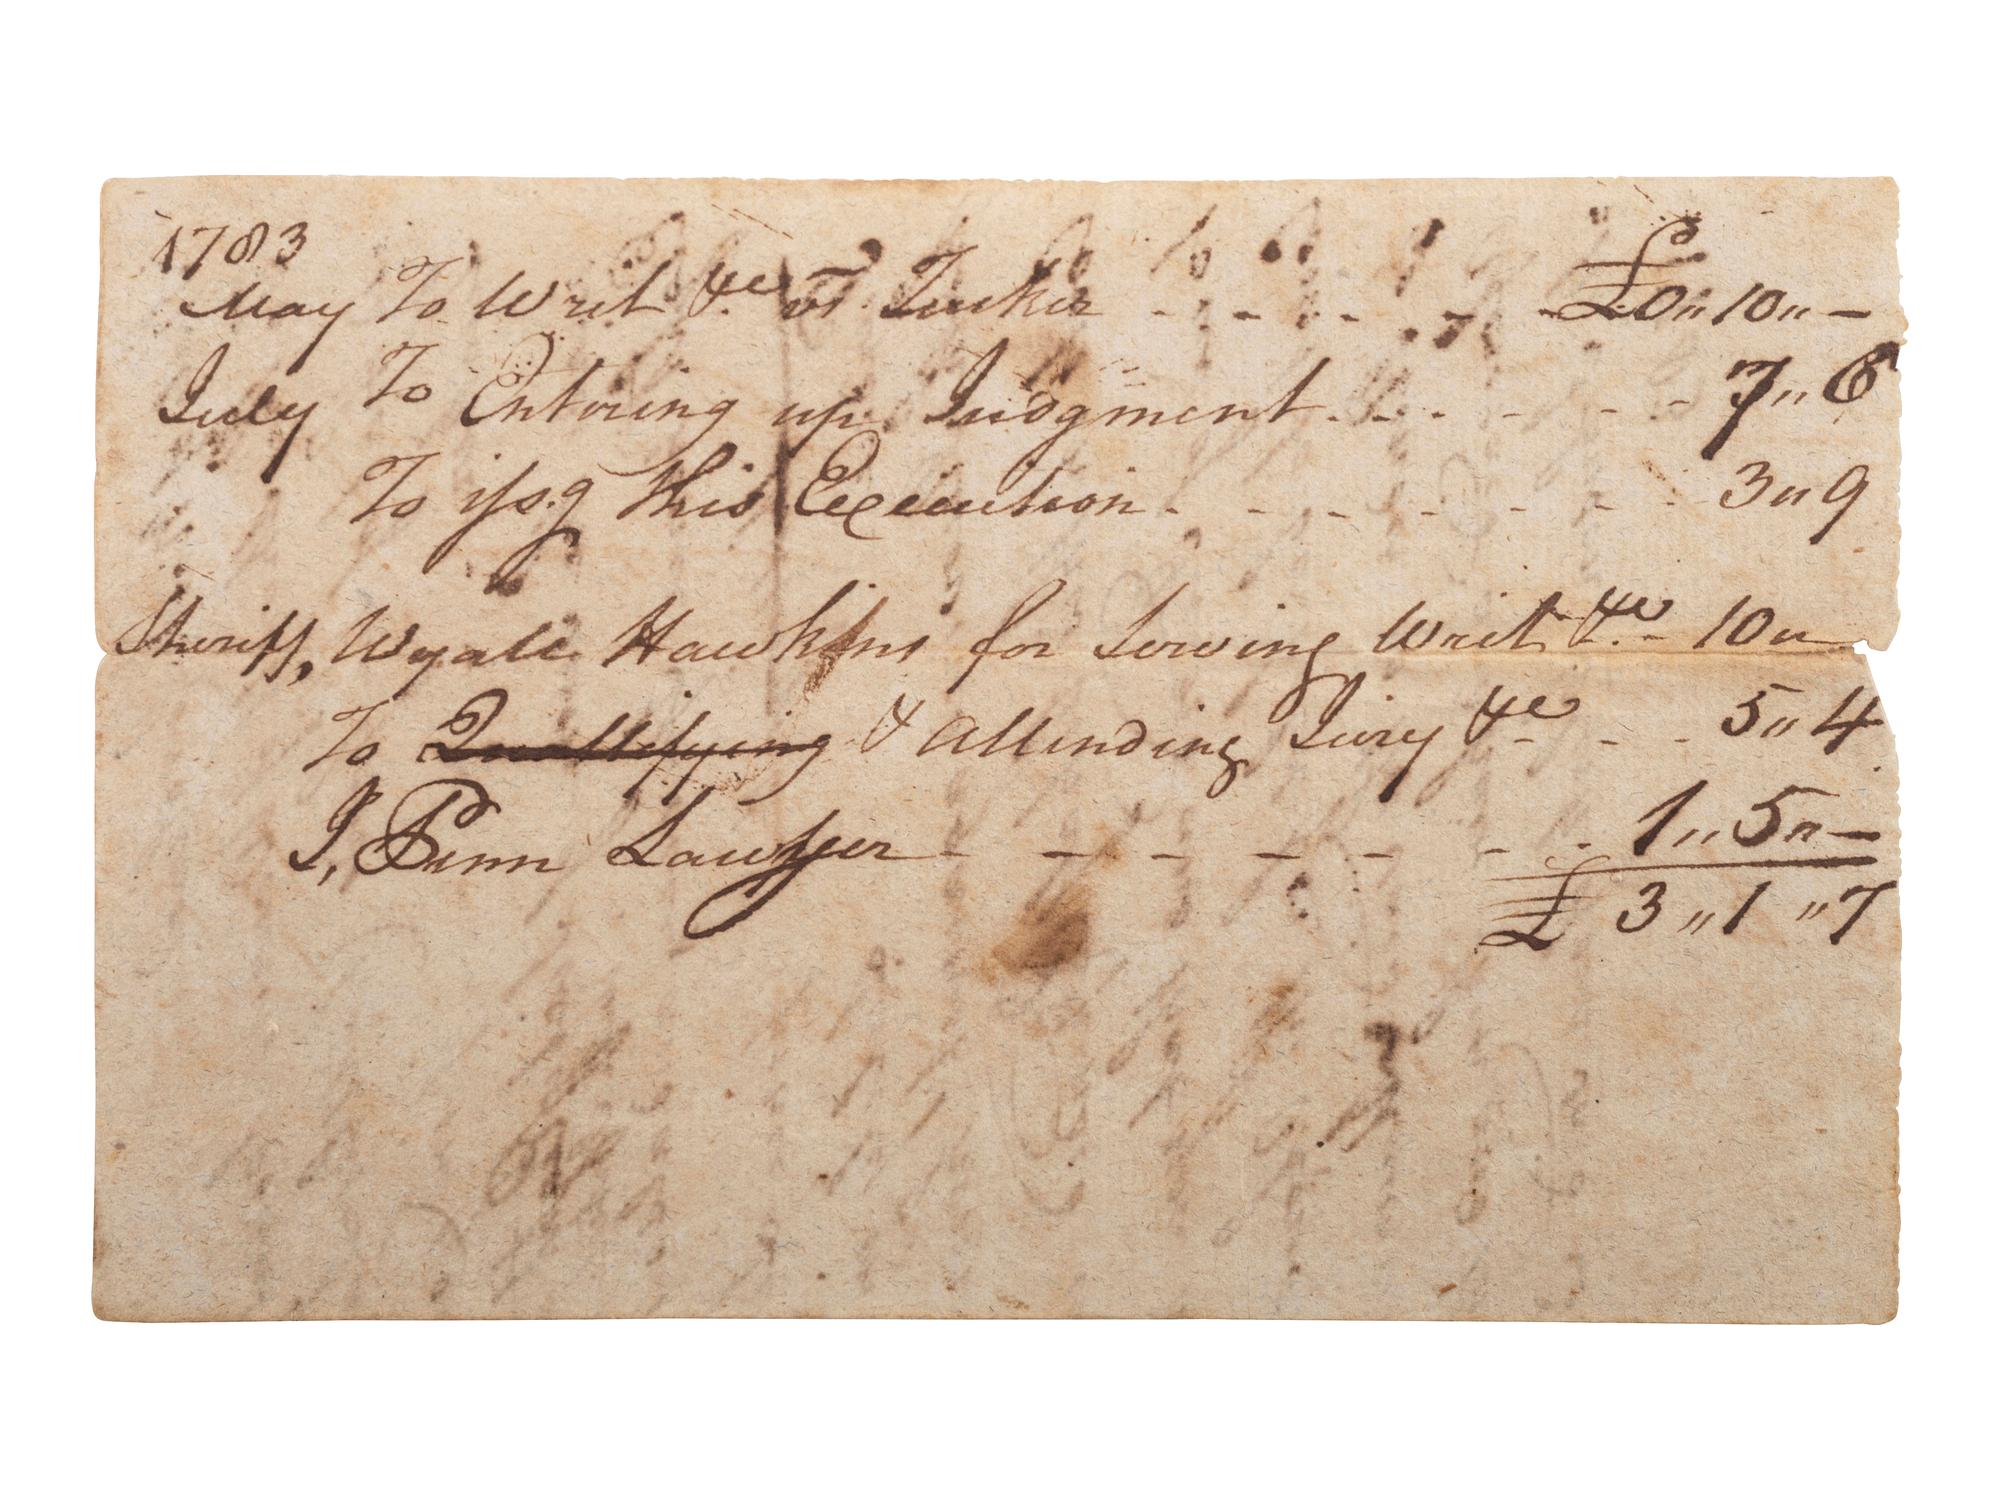 1783
May To Writ &c vs. Tucker - - - - - £0"10"-
July To Entering up Judgment - - - - - - 7"6
To iss.g this Execution - - - - - - - 3"9
Sheriff, Wyatt Hawkins for Serving Writ &c - 10"
To ~~Quallifying~~ & Attending Jury &c - - - 5"4
J, Penn Lawyer - - - - - - - 1"5"-
£ 3"1"7